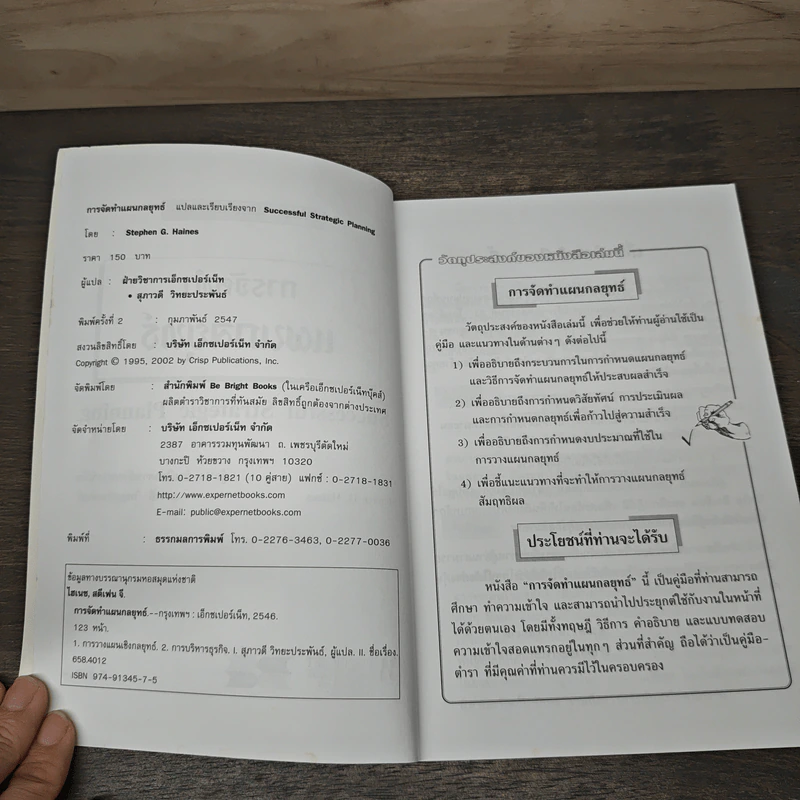 การจัดทำแผนกลยุทธ์ แปลและเรียบเรียงจาก Successful Strategic Planning
โดย : Stephen G. Haines
ราคา 150 บาท
ผู้แปล : ฝ่ายวิชาการเอ็กซเปอร์เน็ท
• สุภาวดี วิทยะประพันธ์
พิมพ์ครั้งที่ 2 : กุมภาพันธ์ 2547
สงวนลิขสิทธิ์โดย : บริษัท เอ็กซเปอร์เน็ท จำกัด
Copyright © 1995, 2002 by Crisp Publications, Inc.
จัดพิมพ์โดย : สำนักพิมพ์ Be Bright Books (ในเครือเอ็กซเปอร์เน็ทบุ๊คส์)
ผลิตตำราวิชาการที่ทันสมัย ลิขสิทธิ์ถูกต้องจากต่างประเทศ
จัดจำหน่ายโดย : บริษัท เอ็กซเปอร์เน็ท จำกัด
2387 อาคารรวมทุนพัฒนา ถ. เพชรบุรีตัดใหม่
บางกะปิ ห้วยขวาง กรุงเทพฯ 10320
โทร. 0-2718-1821 (10 คู่สาย) แฟกซ์ : 0-2718-1831
http://www.expernetbooks.com
E-mail: public@expernetbooks.com
พิมพ์ที่ : ธรรกมลการพิมพ์ โทร. 0-2276-3463, 0-2277-0036
ข้อมูลทางบรรณานุกรมหอสมุดแห่งชาติ
ไฮเนซ, สตีเฟน จี.
การจัดทำแผนกลยุทธ์.--กรุงเทพฯ : เอ็กซเปอร์เน็ท, 2546.
123 หน้า.
1. การวางแผนเชิงกลยุทธ์. 2. การบริหารธุรกิจ. I. สุภาวดี วิทยะประพันธ์, ผู้แปล. II. ชื่อเรื่อง.
658.4012
ISBN 974-91345-7-5
วัตถุประสงค์ของหนังสือเล่มนี้
การจัดทำแผนกลยุทธ์
วัตถุประสงค์ของหนังสือเล่มนี้ เพื่อช่วยให้ท่านผู้อ่านใช้เป็น
คู่มือ และแนวทางในด้านต่างๆ ดังต่อไปนี้
1) เพื่ออธิบายถึงกระบวนการในการกำหนดแผนกลยุทธ์
และวิธีการจัดทำแผนกลยุทธ์ให้ประสบผลสำเร็จ
2) เพื่ออธิบายถึงการกำหนดวิสัยทัศน์ การประเมินผล
และการกำหนดกลยุทธ์เพื่อก้าวไปสู่ความสำเร็จ
3) เพื่ออธิบายถึงการกำหนดงบประมาณที่ใช้ใน
การวางแผนกลยุทธ์
4) เพื่อชี้แนะแนวทางที่จะทำให้การวางแผนกลยุทธ์
สัมฤทธิผล
ประโยชน์ที่ท่านจะได้รับ
หนังสือ “การจัดทำแผนกลยุทธ์” นี้ เป็นคู่มือที่ท่านสามารถ
ศึกษา ทำความเข้าใจ และสามารถนำไปประยุกต์ใช้กับงานในหน้าที่
ได้ด้วยตนเอง โดยมีทั้งทฤษฎี วิธีการ คำอธิบาย และแบบทดสอบ
ความเข้าใจสอดแทรกอยู่ในทุกๆ ส่วนที่สำคัญ ถือได้ว่าเป็นคู่มือ-
ตำรา ที่มีคุณค่าที่ท่านควรมีไว้ในครอบครอง